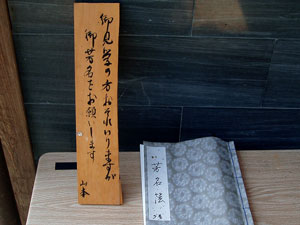 御見学の方おそれいりますが
御芳名をお願いします
山本
御芳名録